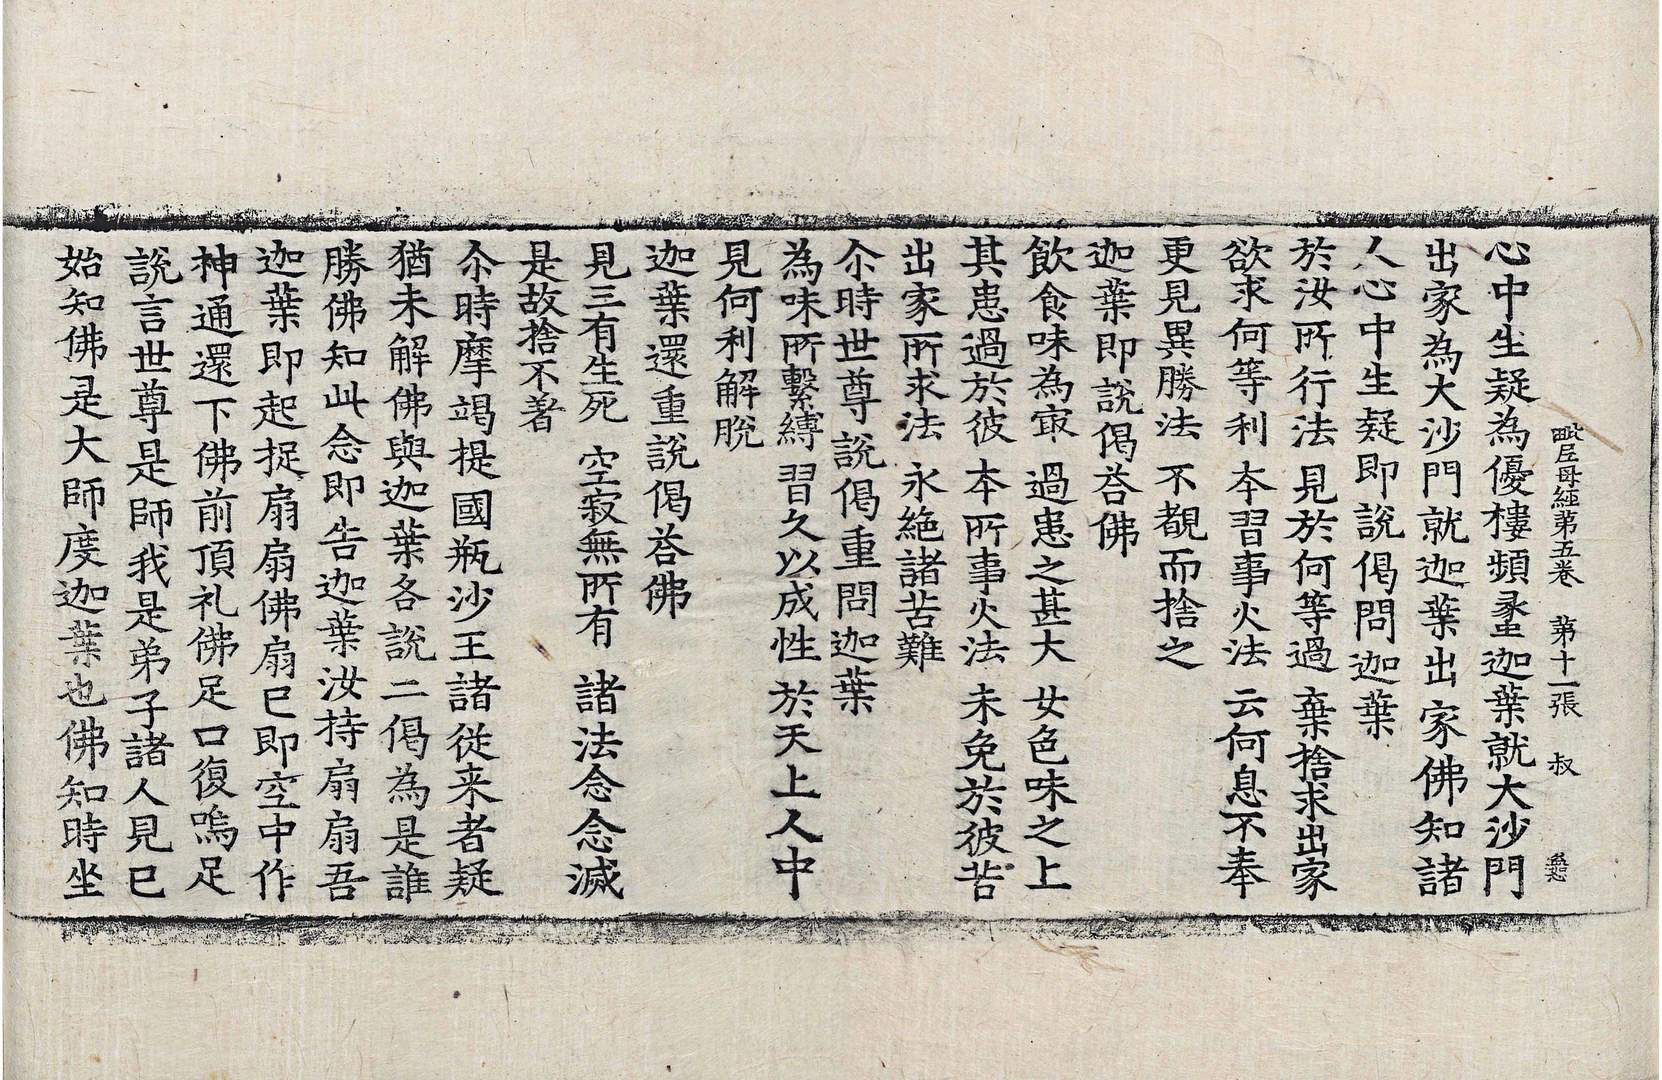 毗尼母經第五卷　第十一張　叔
心中生疑為優樓頻蠡迦葉就大沙門
出家為大沙門就迦葉出家佛知諸
人心中生疑即說偈問迦葉
於汝所行法　見於何等過　棄捨求出家
欲求何等利　本習事火法　云何息不奉
更見異勝法　不覩而捨之
迦葉即說偈荅佛
飲食味為㝡　過患之甚大　女色味之上
其患過於彼　本所事火法　未免於彼苦
出家所求法　永絕諸苦難
尒時世尊說偈重問迦葉
為味所繫縛　習久以成性　於天上人中
見何利解脫
迦葉還重說偈荅佛
見三有生死　空寂無所有　諸法念念滅
是故捨不著
尒時摩竭提國瓶沙王諸從来者疑
猶未解佛與迦葉各說二偈為是誰
勝佛知此念即告迦葉汝持扇扇吾
迦葉即起捉扇扇佛扇已即空中作
神通還下佛前頂礼佛足口復嗚足
說言世尊是師我是弟子諸人見已
始知佛是大師度迦葉也佛知時坐